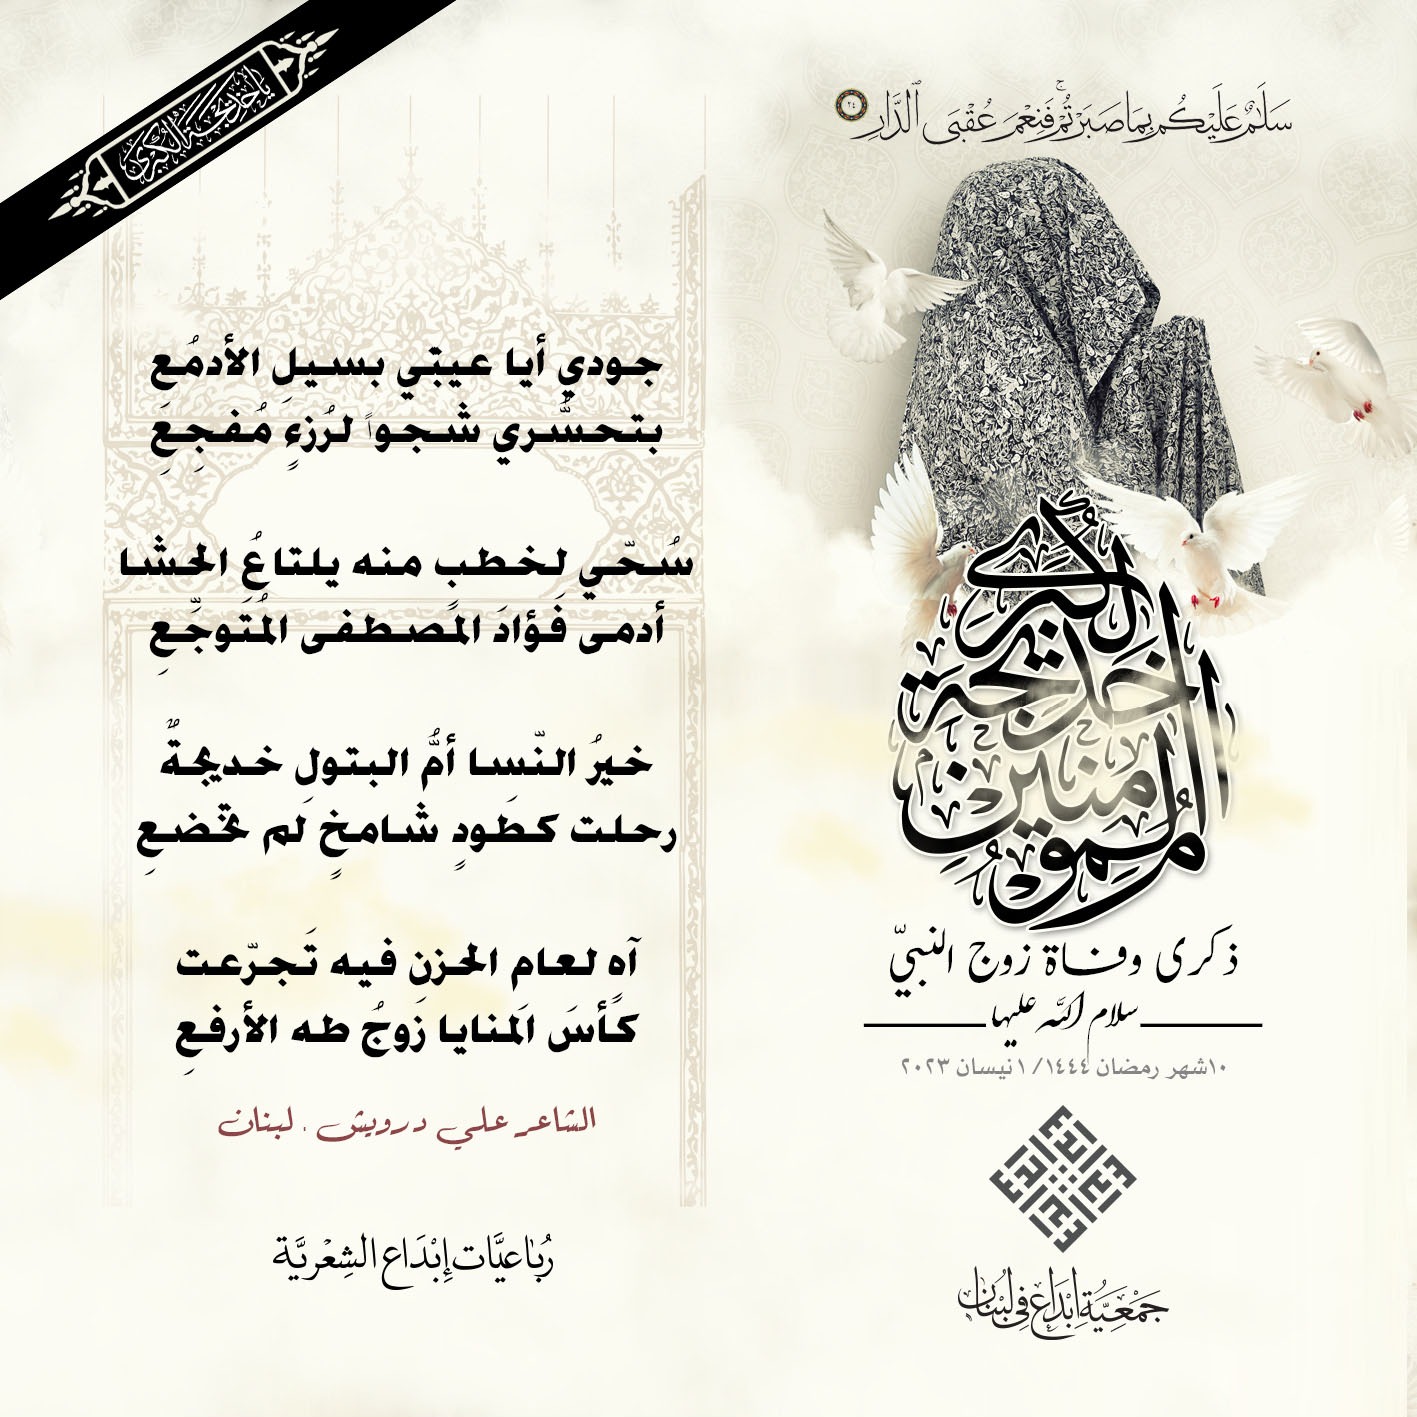 سَلَٰمٌ عَلَيْكُم بِمَا صَبَرْتُمْ ۚ فَنِعْمَ عُقْبَى ٱلدَّارِ ٢٤
أم المؤمنين خديجة الكبرى
ذكرى وفاة زوج النبيّ
سلام الله عليها
١٠ شهر رمضان ١٤٤٤/ ١ نيسان ٢٠٢٣
إبداع إبداع إبداع إبداع
جَمْعِيَّة إِبْدَاع في لبْنان
يا خديجة الكبرى
جودي أيا عيبتي بسيلِ الأدمُعِ
بتحسُّري شجواً لرُزءٍ مُفجِعِ
سُحّي لِخطبٍ منه يلتاعُ الحشا
أدمى فؤادَ المصطفى المُتوجِّعِ
خيرُ النّسا أمُّ البتولِ خديجةٌ
رحلت كطَودٍ شامخٍ لم تخضعِ
آهٍ لعام الحزنِ فيه تَجرّعت
كأسَ المنايا زوجُ طه الأرفعِ
الشاعر علي درويش . لبنان
رُبٰاعيَّات إِبْدَاع الشِعْريَّة